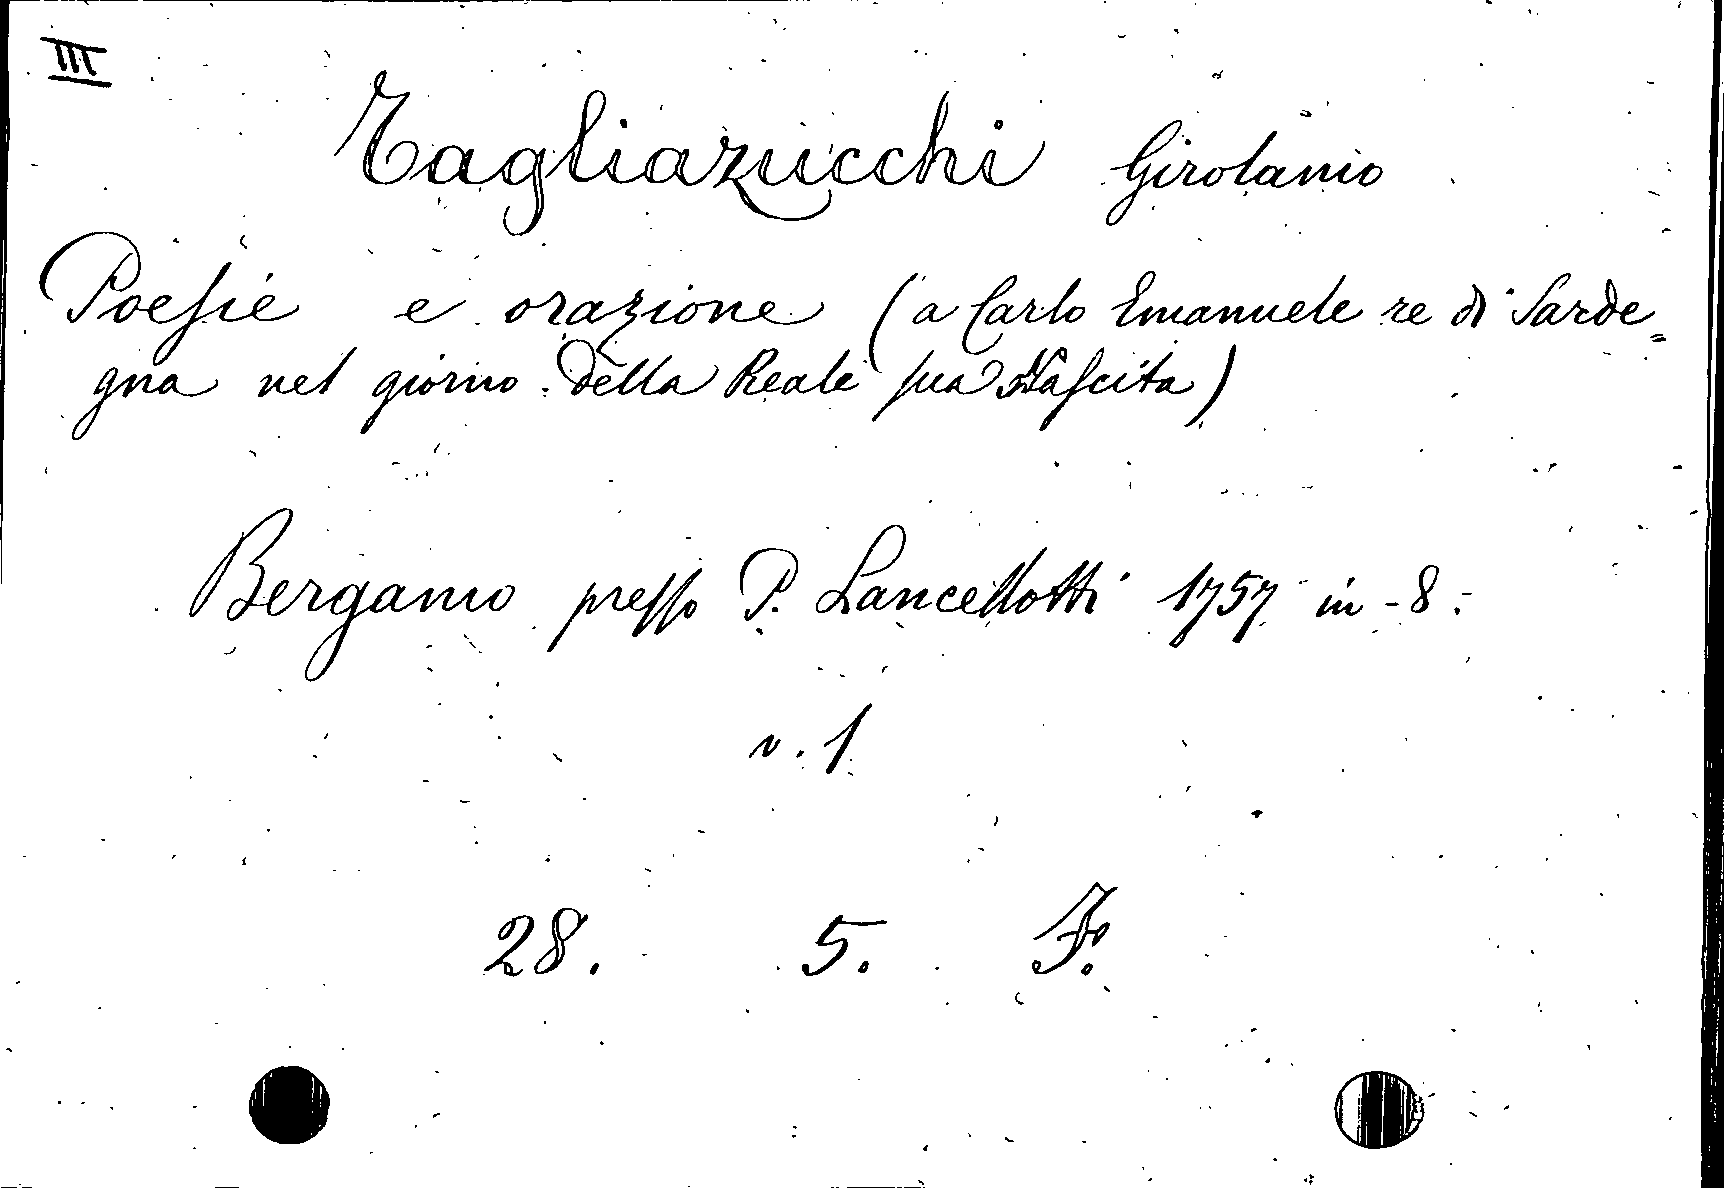 III
Tagliazucchi Girolamo
Poesie e orazione (a Carlo Emanuele re di Sarde=
gna nel giorno della Reale sua Nascita)
Bergamo presso P. Lancellotti 1757 in-8.
v. 1
28. 5. F.